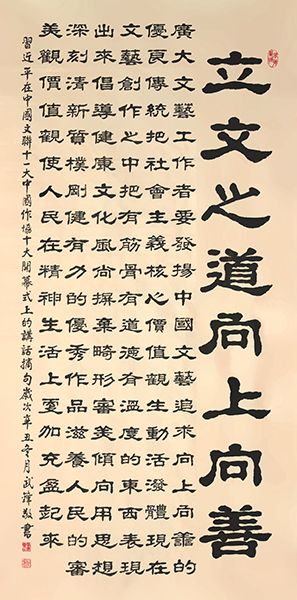 立文之道向上向善
廣大文藝工作者要發揚中國文藝追求向上向譱的
優良傳統把社會主義核心價值觀生動活潑體現在
文藝創作之中把有筋骨有道德有溫度的東西表現
出來倡導健康文化風尚摒棄畸形審美傾向用思想
深刻清新質樸剛健有力的優秀作品滋養人民的審
美觀價值觀使人民在精神生活上更加充盈起來
習近平在中國文聯十一大中國作協十大開幕式上的講話摘句歲次辛丑冬月武鋒敬書